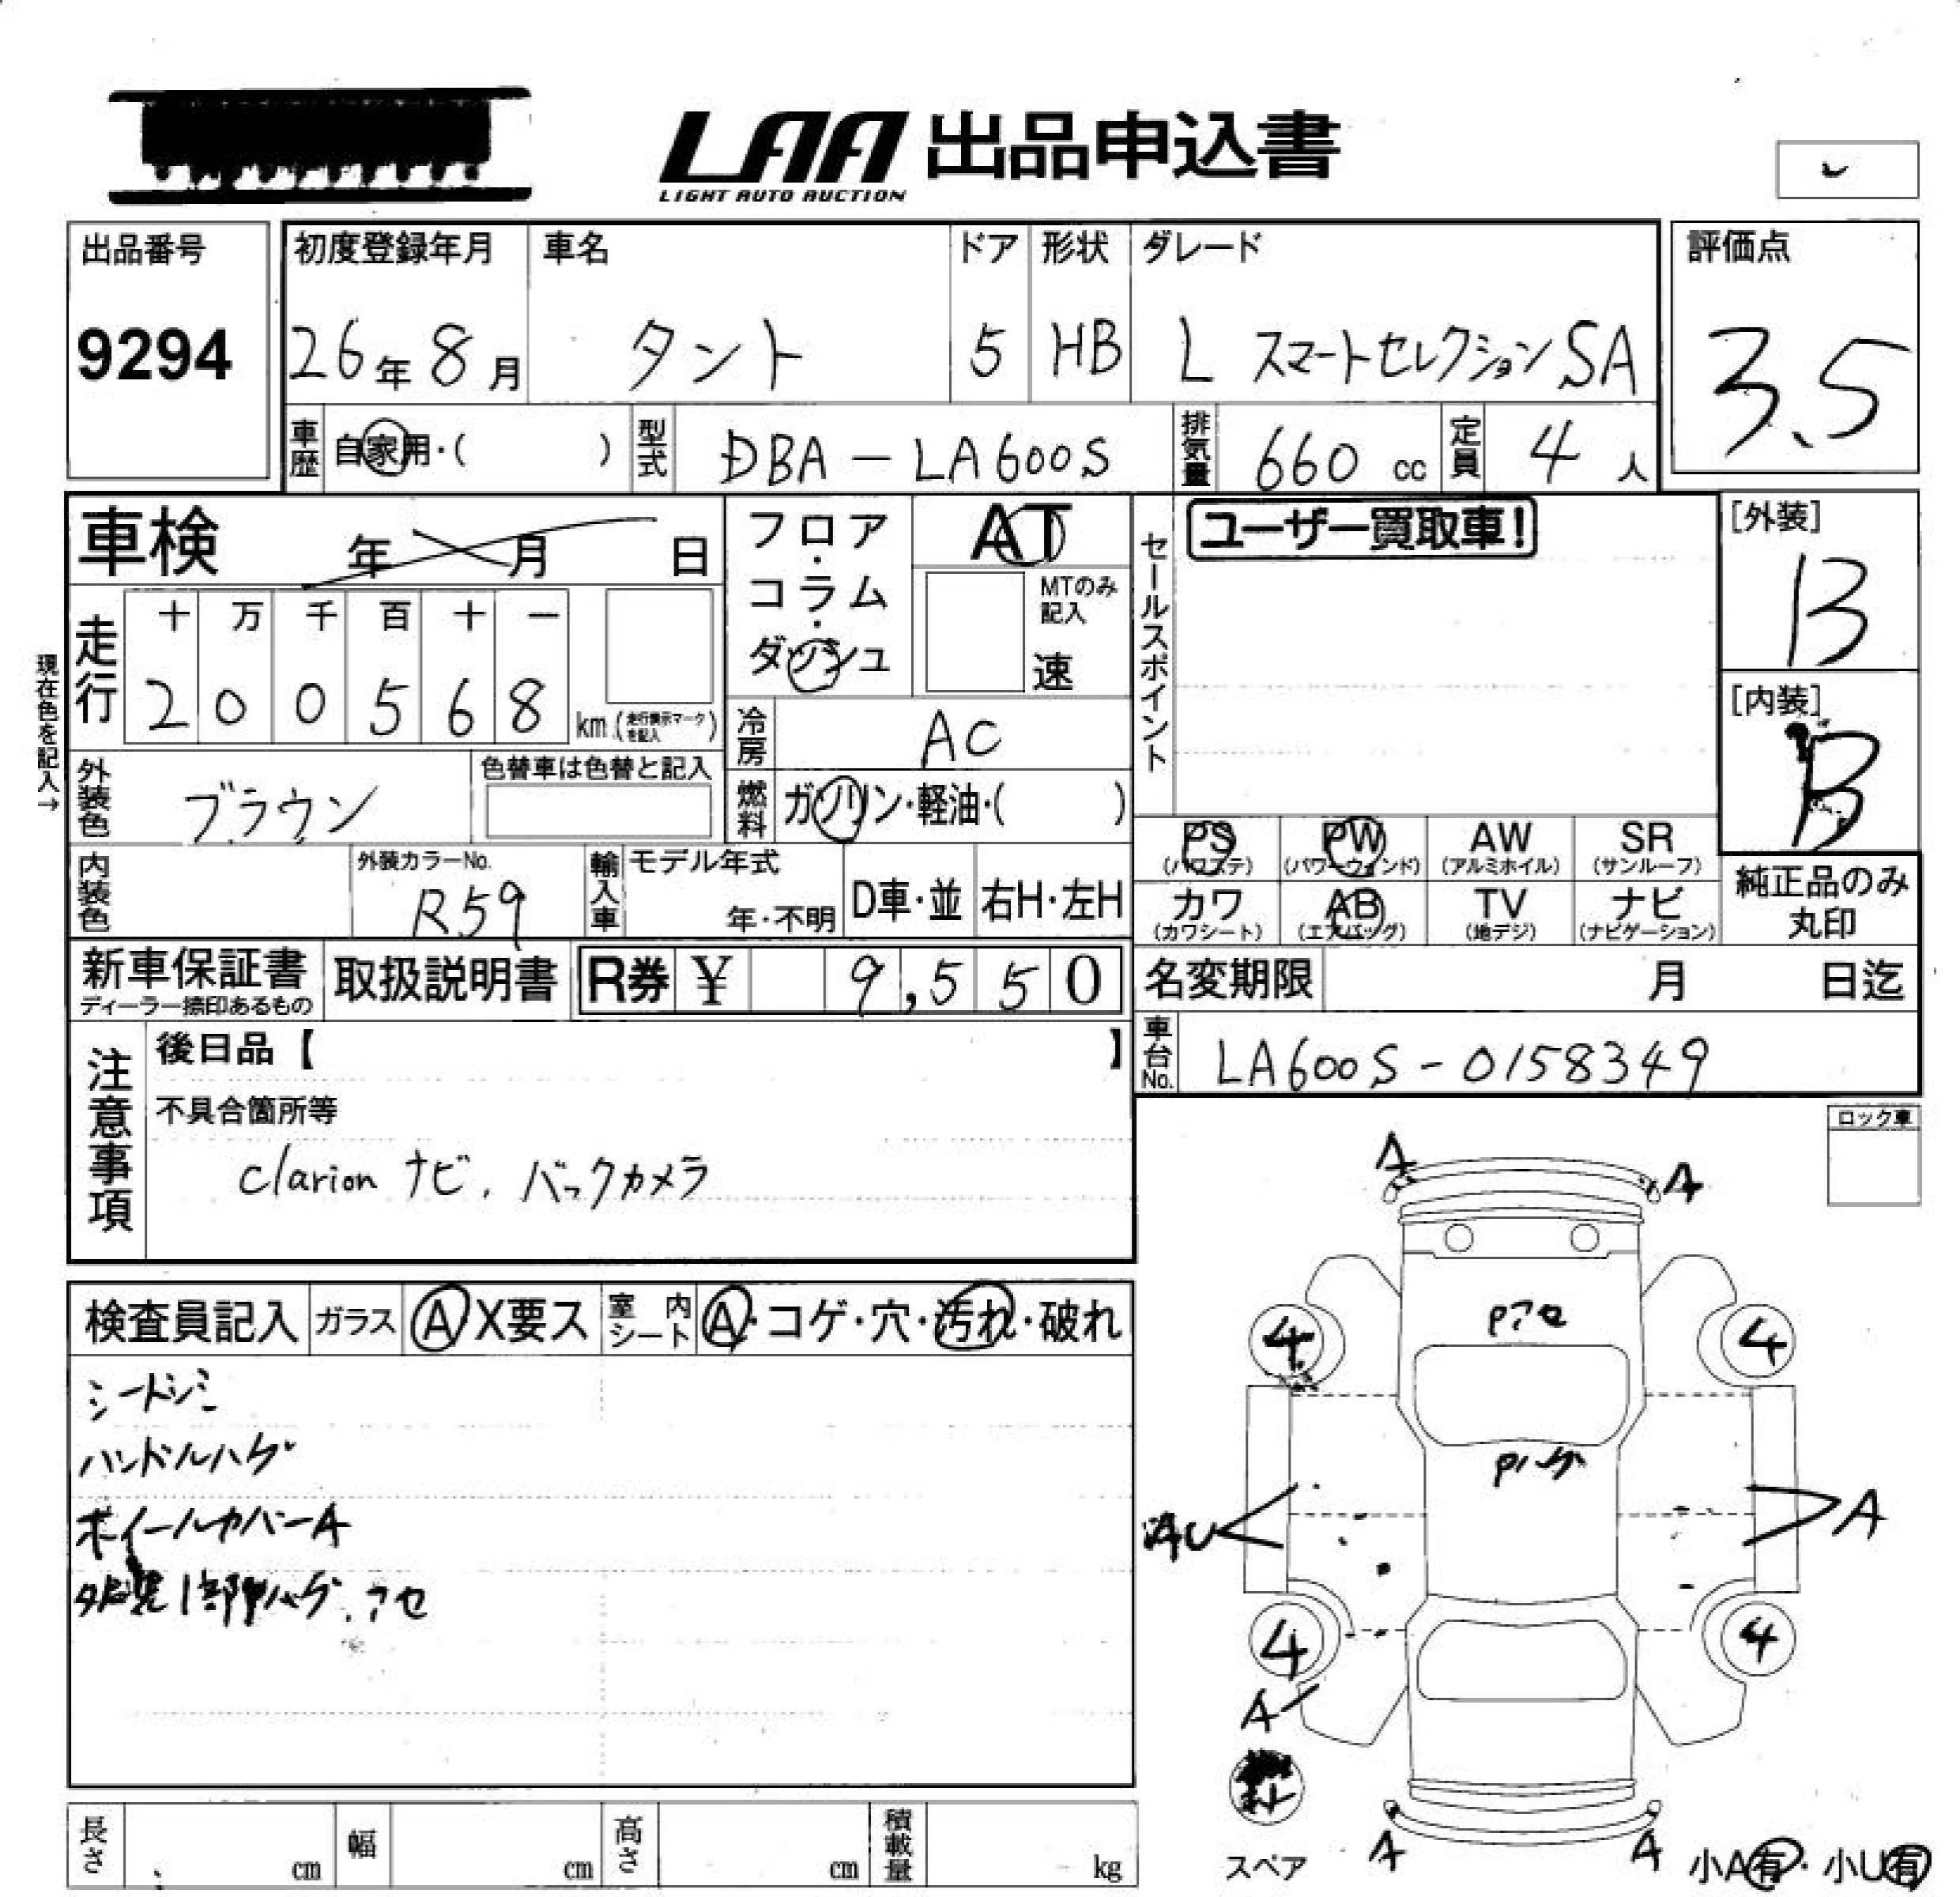 LAA 出品申込書
LIGHT AUTO AUCTION
出品番号
9294
初度登録年月
26年8月
車名
タント
ドア
5
形状
HB
グレード
L スマートセレクションSA
評価点
3.5
車歴
自家用・( )
型式
DBA-LA600S
排気量
660 cc
定員
4 人
車検 年 月 日
フロア・コラム・ダッシュ
AT
MTのみ記入
速
セールスポイント
ユーザー買取車!
[外装]
B
[内装]
B
現在色を記入→
走行
十 万 千 百 十 一
2 0 0 5 6 8 km (走行表示マークを記入)
冷房
AC
外装色
ブラウン
色替車は色替と記入
燃料
ガソリン・軽油・( )
PS (パワステ)
PW (パワーウィンド)
AW (アルミホイル)
SR (サンルーフ)
カワ (カワシート)
AB (エアバッグ)
TV (地デジ)
ナビ (ナビゲーション)
純正品のみ丸印
内装色
外装カラーNo.
R59
輸入車
モデル年式
年・不明
D車・並
右H・左H
新車保証書
ディーラー捺印あるもの
取扱説明書
R券 ¥ 9,550
名変期限 月 日迄
車台No.
LA600S-0158349
注意事項
後日品【 】
不具合箇所等
Clarion ナビ、バックカメラ
ロック車
検査員記入
ガラス
A X要ス
室内シート
A・コゲ・穴・汚れ・破れ
シートシミ
ハンドルハゲ
ホイールカバーA
外装1部Pハゲ、アセ
A
A
Pアセ
4
4
Pハゲ
AU
A
4
4
A
スペア
A
A
小A有・小U有
長さ cm
幅 cm
高さ cm
積載量 kg